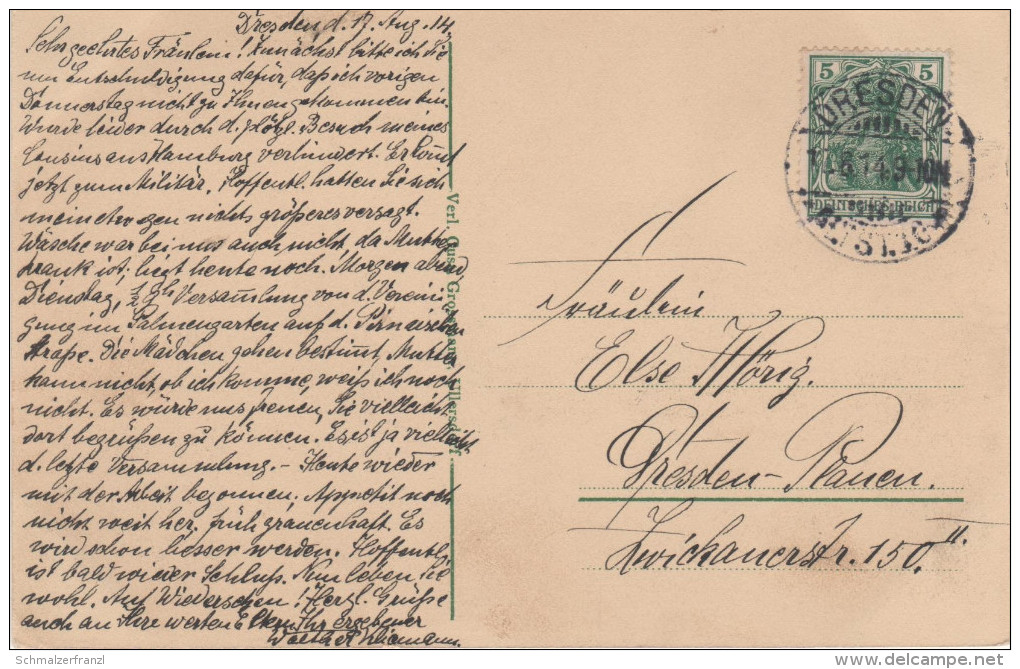 Dresden d. 17. Aug. 14.
Sehrgeehrtes Fräulein! Zunächst bitte ich Sie
um Entschuldigung dafür, daß ich vorigen
Donnerstag nicht zu Ihnen gekommen bin.
Wurde leider durch d. plötzl. Besuch meines
Cousins aus Hamburg verhindert. Er kommt
jetzt zum Militär. Hoffentl. hatten Sie sich
meinetwegen nichts größeres versagt.
Wäsche war bei uns auch nicht, da Mutter
krank ist; liegt heute noch. Morgen abend,
Dienstag, ½ 9h Versammlung von d. Verein
gung im Palmengarten auf d. Pirnaischen
Straße. Die Mädchen gehen bestimmt. Mutter
kann nicht, ob ich komme, weiß ich noch
nicht. Es würde uns freuen, Sie vielleicht
dort begrüßen zu können. Es ist ja vielleicht
d. letzte Versammlung. – Heute wieder
mit der Arbeit begonnen. Appetit noch
nicht weit her, früh grauenhaft. Es
wird schon besser werden. Hoffentl.
ist bald wieder Schluß. Nun leben Sie
wohl. Auf Wiedersehen! Herzl. Grüße
auch an Ihre werten Eltern Ihr ergebener
Verl. Gust.
5 5
DEUTSCHES REICH
DRESDEN
ALTST.
Fräulein
Else
Dresden-Plauen.
Zwickauerstr. 150. II.
Schmalzerfranzl
www.delcampe.net